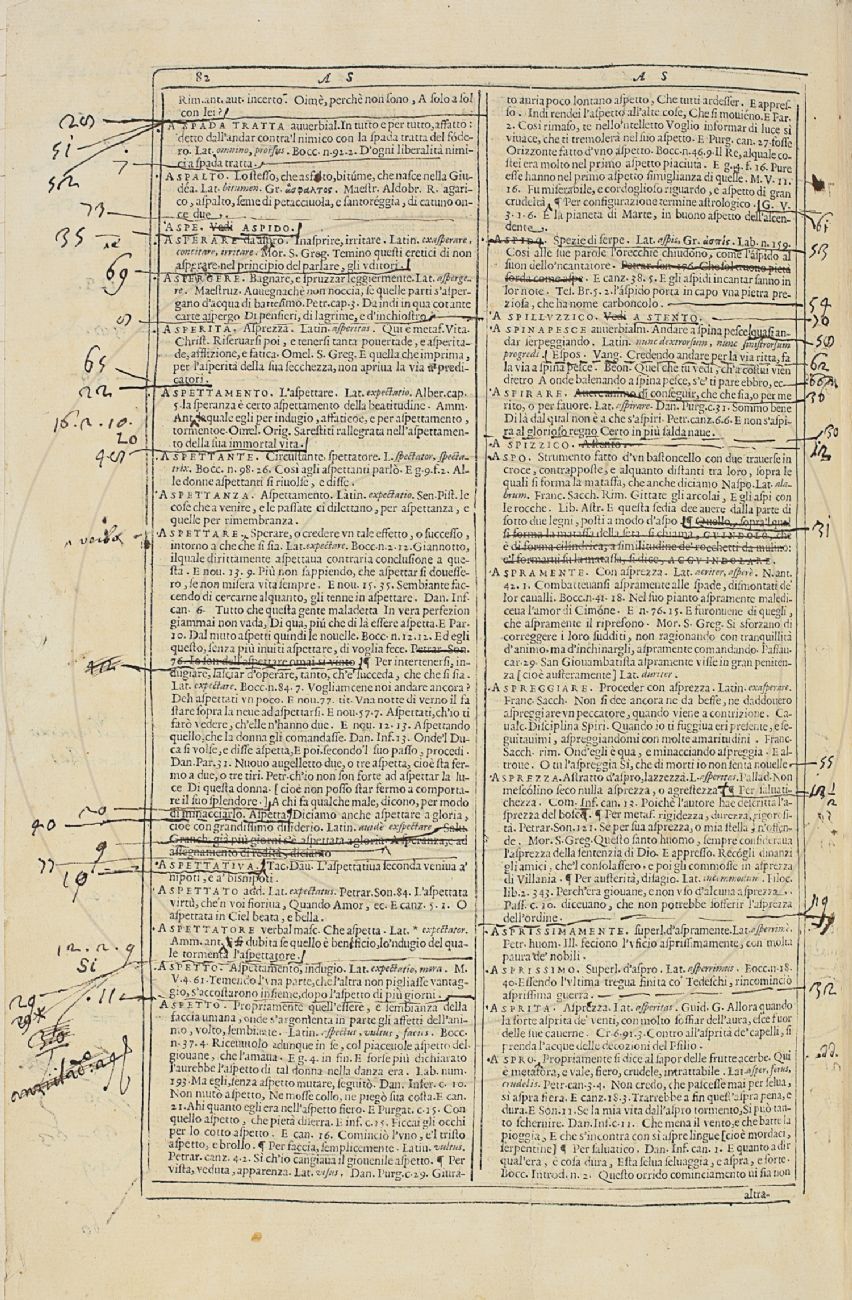 82 A S A S
Rim. ant. aut. incerto. Oimè, perchè non sono, A solo a sol
con lei?
A SPADA TRATTA auuerbial. In tutto e per tutto, affatto:
detto dall'andar contra'l nimico con la spada tratta del fòde-
ro. Lat. omnino, prorsus. Bocc. n. 92. 2. D'ogni liberalità nimi-
cia spada tratta.
ASPALTO. Lo stesso, che asfalto, bitúme, che nasce nella Giu-
déa. Lat. bitumen. Gr. ἄσφαλτος. Maestr. Aldobr. R. agari-
co, aspalto, seme di petacciuola, e santoréggia, di catuno on-
ce due.
ASPE. Vedi ASPIDO.
ASPERARE da aspro. Inasprire, irritare. Latin. exasperare,
concitare, irritare. Mor. S. Greg. Temino questi eretici di non
asperare nel principio del parlare, gli vditori.
ASPERGERE. Bagnare, e spruzzar leggiermente. Lat. asperge-
re. Maestruz. Auuegnachè non noccia, se quelle parti s'asper-
gano d'acqua di battesimo. Petr. cap. 3. Da indi in qua cotante
carte aspergo Di pensieri, di lagrime, e d'inchiostro
ASPERITÀ. Asprezza. Latin. asperitas. Qui è metaf. Vita.
Christ. Riseruarsi poi, e tenersi tanta pouertade, e asperita-
de, afflizione, e fatica. Omel. S. Greg. E quella che imprima,
per l'asperità della sua secchezza, non apriua la via a' predi-
catori.
ASPETTAMENTO. L'aspettare. Lat. expectatio. Alber. cap.
5. la speranza è certo aspettamento della beatitudine. Amm.
Ant. quale egli per indugio, affaticoe, e per aspettamento,
tormentoe. Omel. Orig. Sarestiti rallegrata nell'aspettamen-
to della sua immortal vita.
ASPETTANTE. Circustante, spettatore. L. spectator, specta-
trix. Bocc. n. 98. 26. Così agli aspettanti parlò. E g. 9. f. 2. Al-
le donne aspettanti si riuolse, e disse.
ASPETTANZA. Aspettamento. Latin. expectatio. Sen. Pist. le
cose che a venire, e le passate ci dilettano, per aspettanza, e
quelle per rimembranza.
ASPETTARE. Sperare, o credere vn tale effetto, o successo,
intorno a che che si sia. Lat. expectare. Bocc. n. 2. 12. Giannotto,
il quale dirittamente aspettaua contraria conclusione a que-
sta. E nou. 13. 9. Più non sappiendo, che aspettar si douesse-
ro, se non misera vita sempre. E nou. 15. 35. Sembiante fac-
cendo di cercarne alquanto, gli tenne in aspettare. Dan. Inf.
can. 6. Tutto che questa gente maladetta In vera perfezion
giammai non vada, Di qua, più che di là essere aspetta. E Par
10. Dal muto aspetti quindi le nouelle. Bocc. n. 12. 12. Ed egli
questo, senza più inuiti aspettare, di voglia fece. Petrar. Son.
76. Io son dall'aspettare omai sì vinto ¶ Per intertenersi, in-
dugiare, lasciar d'operare, tanto, ch'e' succeda, che che si sia.
Lat. expectare. Bocc. n. 84. 7. Vogliamcene noi andare ancora?
Deh aspettati vn poco. E nou. 77. tit. Vna notte di verno il fa
stare sopra la neue ad aspettarsi. E nou. 57. 7. Aspettati, ch'io ti
farò vedere, ch'elle n'hanno due. E nou. 12. 13. Aspettando
quello, che la donna gli comandasse. Dan. Inf. 23. Onde'l Du-
ca si volse, e disse aspetta, E poi secondo'l suo passo, procedi.
Dan. Par. 31. Nuouo augelletto due, o tre aspetta, cioè sta fer-
mo a due, o tre tiri. Petr. ch'io non son forte ad aspettar la lu-
ce Di questa donna. [cioè non posso star fermo a comporta-
re il suo splendore.] A chi fa qualche male, dicono, per modo
di minacciarlo. Aspetta. Diciamo anche aspettare a gloria,
cioè con grandissimo disiderio. Latin. auidè expectare
assegnamento di redità, diciamo
ASPETTATIVA. Tac. Dau. L'aspettatiua seconda veniua a'
nipoti, e a' bisnipoti.
ASPETTATO add. Lat. expectatus. Petrar. Son. 84. L'aspettata
virtù, che'n voi fioriua, Quando Amor, ec. E canz. 5. 1. O
aspettata in Ciel beata, e bella.
ASPETTATORE verbal masc. Che aspetta. Lat. * expectator.
Amm. ant. dubita se quello è beneficio, lo'ndugio del qua-
le tormenta l'aspettatore.
ASPETTO. Aspettamento, indugio. Lat. expectatio, mora. M.
V. 4. 61. Temendo l'vna parte, che l'altra non pigliasse vantag-
gio, s'accostarono insieme, dopo l'aspetto di più giorni.
ASPETTO. Propriamente quell'essere, e sembianza della
faccia umana, onde s'argomenta in parte gli affetti dell'ani-
mo, volto, sembiante. Latin. aspectus, vultus, facies. Bocc.
n. 37. 4. Riceuutolo adunque in se, col piaceuole aspetto del
giouane, che l'amaua. E g. 4. in fin. E forse più dichiarato
l'aurebbe l'aspetto di tal donna nella danza era. Lab. num.
193. Ma egli, senza aspetto mutare, seguitò. Dan. Infer. c. 10.
Non mutò aspetto, Ne mosse collo, ne piegò sua costa. E can.
21. Ahi quanto egli era nell'aspetto fiero. E Purgat. c. 15. Con
quello aspetto, che pietà diserra. E inf. c. 15. Ficcai gli occhi
per lo cotto aspetto. E can. 16. Cominciò l'vno, e'l tristo
aspetto, e brollo. ¶ Per faccia, semplicemente. Latin. vultus.
Petrar. canz. 4. 2. Sì ch'io cangiaua il giouenile aspetto. ¶ Per
vista, veduta, apparenza. Lat. visus. Dan. Purg. c. 29. Giura-
to auria poco lontano aspetto, Che tutti ardesser. E appres-
so. Indi rendei l'aspetto all'alte cose, Che si mouieno. E Par.
2. Così rimaso, te nello'ntelletto Voglio informar di luce sì
viuace, che ti tremolerà nel suo aspetto. E Purg. can. 27. fosse
Orizzonte fatto d'vno aspetto. Bocc. n. 46. 9. Il Re, al quale co-
stei era molto nel primo aspetto piaciuta. E g. 4. f. 16. Pure
esse hanno nel primo aspetto simiglianza di quelle. M. V. 11.
16. Fu miserabile, e cordoglioso riguardo, e aspetto di gran
crudeltà. ¶ Per configurazione termine astrologico. G. V.
3. 1. 6. E la pianeta di Marte, in buono aspetto dell'ascen-
dente.
ASPIDO. Spezie di serpe. Lat. aspis. Gr. ἀσπίς. Lab. n. 159.
Così alle sue parole l'orecchie chiudono, come l'aspido al
suon dello'ncantatore.
sorda com'aspe. E canz. 38. 5. E gli aspidi incantar sanno in
lor note. Tes. Br. 5. 2. l'aspido porta in capo vna pietra pre-
ziosa, che ha nome carboncolo.
A SPILLUZZICO. Vedi A STENTO.
A SPINAPESCE auuerbialm. Andare a spina pesce, quasi an-
dar serpeggiando. Latin. nunc dextrorsum, nunc sinistrorsum
progredi. Espos. Vang. Credendo andare per la via ritta, fa
la via a spina pesce. Beon. Quel che tu vedi, ch'a costui vien
dietro A onde balenando a spina pesce, s'e' ti pare ebbro, ec.
ASPIRARE. Auere animo di conseguir, che che sia, o per me
rito, o per fauore. Lat. aspirare. Dan. Purg. c. 31. Sommo bene
Di là dal qual non è a che s'aspiri. Petr. canz. 6. 6. E non s'aspi-
ra al glorioso regno Certo in più salda naue.
A SPIZZICO. A stento.
ASPO. Strumento fatto d'vn bastoncello con due trauerse in
croce, contrapposte, e alquanto distanti tra loro, sopra le
quali si forma la matassa, che anche diciamo Naspo. Lat. ala-
brum. Franc. Sacch. Rim. Gittate gli arcolai, E gli aspi con
le rocche. Lib. Astr. E questa sedia dee auere dalla parte di
sotto due legni, posti a modo d'aspo. ¶ Quello, sopra'l qual
si forma la matassa della seta, si chiama, GVINDOLO, che
è di forma cilindrica, a similitudine de' rocchetti da mulino:
e'l formarui su la matassa, si dice, AGGVINDOLARE.
ASPRAMENTE. Con asprezza. Lat. acriter, asperè. N. ant.
42. 1. Combatteuansi aspramente alle spade, dismontati de'
lor caualli. Bocc. n. 41. 18. Nel suo pianto aspramente maledi-
ceua l'amor di Cimóne. E n. 76. 15. E furonuene di quegli,
che aspramente il ripresono. Mor. S. Greg. Si sforzano di
correggere i loro sudditi, non ragionando con tranquillità
d'animo, ma d'inchinargli, aspramente comandando. Passau.
car. 29. San Giouambatista aspramente visse in gran peniten-
za [cioè austeramente] Lat. duriter.
ASPREGGIARE. Proceder con asprezza. Latin. exasperare.
Franc. Sacch. Non si dee ancora ne da besse, ne daddouero
aspreggiare vn peccatore, quando viene a contrizione. Ca-
ualc. Disciplina Spiri. Quando io ti fuggiua eri presente, e se-
guitauimi, aspreggiandomi con molte amaritudini. Franc.
Sacch. rim. Ond'egli è qua, e minacciando aspreggia. E al-
troue. O tu l'aspreggia Sì, che di morti io non senta nouelle
ASPREZZA. Astratto d'aspro, lazzezza. L. asperitas. Pallad. Non
mescólino seco nulla asprezza, o agrestezza ¶ Per saluati-
chezza. Com. Inf. can. 12. Poichè l'autore hae descritta l'a-
sprezza del bosco. ¶ Per metaf. rigidezza, durezza, rigorosi-
tà. Petrar. Son. 121. Se per sua asprezza, o mia stella, n'offen-
de, Mor. S. Greg. Questo santo huomo, sempre consideraua
l'asprezza della sentenzia di Dio. E appresso. Récogli dinanzi
gli amici, che'l consolassero e poi gli commosse in asprezza
di Villania. ¶ Per austerità, disagio. Lat. incommodum. Filoc.
lib. 2. 343. Perch'era giouane, e non vso d'alcuna asprezza.
Pass. c. 10. diceuano, che non potrebbe sofferir l'asprezza
dell'ordine.
ASPRISSIMAMENTE. superl. d'aspramente. Lat. asperrimè.
Petr. huom. Ill. feciono l'vficio asprissimamente, con molta
paura de' nobili.
ASPRISSIMO. Superl. d'aspro. Lat. asperrimus. Bocc. n. 18.
40. Essendo l'vltima tregua finita co' Tedeschi, rincominciò
asprissima guerra.
ASPRITÀ. Asprezza. Lat. asperitas. Guid. G. Allora quando
la forte asprita de' venti, con molto soffiar dell'aura, esce fuor
delle sue cauerne. Cr. 6. 91. 3. Contro all'asprità de' capelli, si
prenda l'acque delle decozioni del Psilio.
ASPRO. Propriamente si dice al sapor delle frutte acerbe. Qui
è metafora, e vale, fiero, crudele, intrattabile. Lat. asper, ferus,
crudelis. Petr. canz. 3. 4. Non credo, che pascesse mai per selua,
sì aspra fiera. E canz. 18. 3. Trarrebbe a fin quest'aspra pena, e
dura. E Son. 11. Se la mia vita dall'aspro tormento, Si può tan-
to schernire. Dan. Inf. c. 11. Che mena il vento, e che batte la
pioggia, E che s'incontra con sì aspre lingue [cioè mordaci,
serpentine] ¶ Per saluatico. Dan. Inf. can. 1. E quanto a dir
qual'era, è cosa dura, Esta selua seluaggia, e aspra, e forte.
Bocc. Introd. n. 2. Questo orrido cominciamento vi sia non
altra-
51
7
73
35
69
65
22
16. 2. 10.
20
20
40
9
77
19
12. 2. 9
Si
29
. 11
61
53
54
62
36
31
55
32